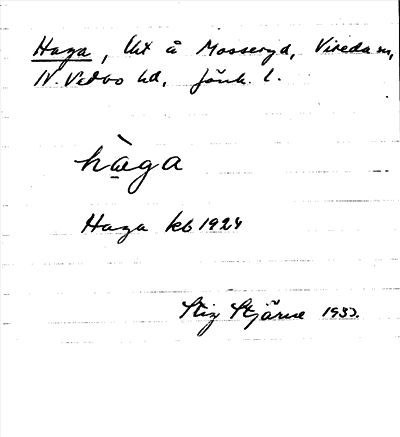 Haga, lht å Mosseryd, Vireda sn,
N. Vedbo hd, Jönk. l.
hàga
Haga kb 1924
Stig Stjärne 1933.